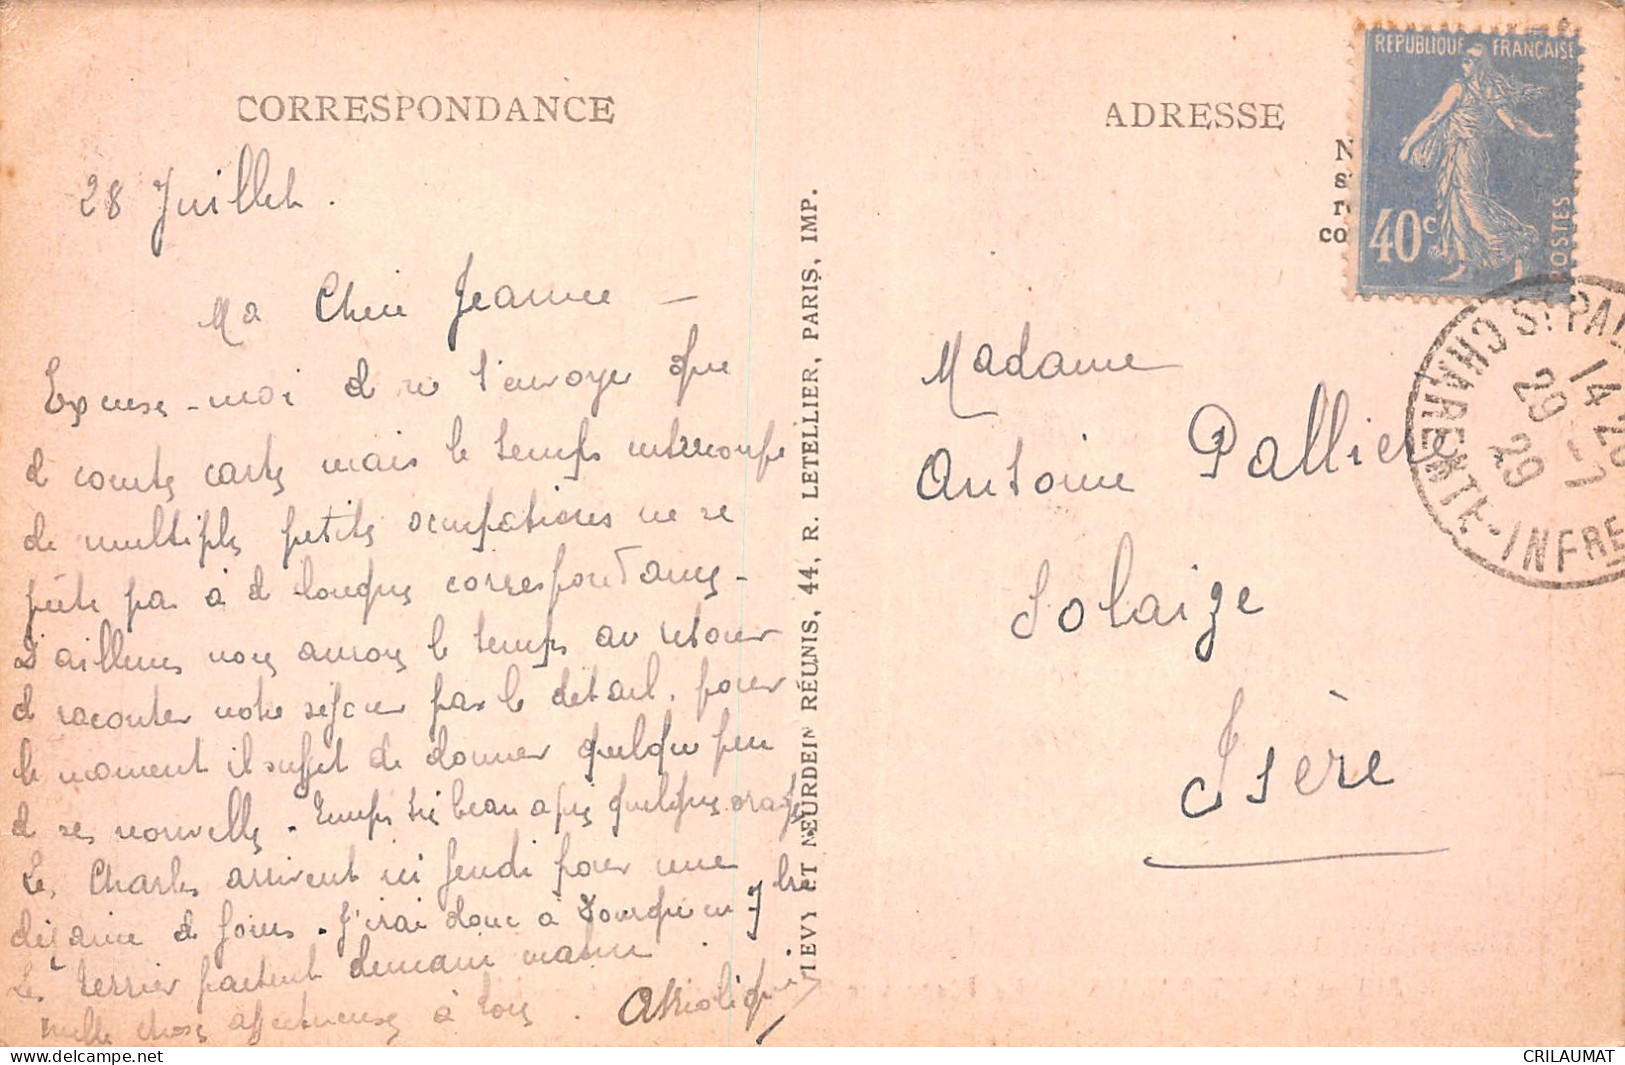 CORRESPONDANCE
28 Juillet.
Ma Chère Jeanne —
Excuse-moi de ne t'envoyer que
de courtes cartes mais le temps interrompu
de multiples petites occupations ne se
prête pas à de longues correspondances -
D'ailleurs nous aurons le temps au retour
de raconter notre séjour par le détail. pour
le moment il suffit de donner quelque peu
de ses nouvelles. Temps très beau après quelques orages
Les Charles arrivent ici jeudi pour une
dizaine de jours. J'irai donc à
Les Terrier partent demain matin.
Mille choses affectueuses à tous.
LEVY ET NEURDEIN RÉUNIS, 44, R. LETELLIER, PARIS, IMP.
ADRESSE
N
s
r
co
REPUBLIQUE FRANÇAISE
40c
POSTES
ST PAL
CHARENTE-INFRE
14 20
29 -7
29
Madame
Antoine Pallière
Solaize
Isère
CRILAUMAT